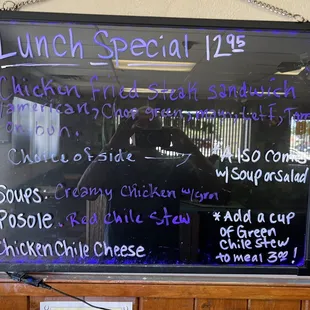 Lunch Special 12⁹⁵
Chicken Fried Steak sandwich
american, Chop green, mayo, Let, Tom
on bun.
Choice of side → *Also comes
w/ Soup or Salad
Soups: Creamy Chicken w/grn
Posole, Red Chile Stew
Chicken Chile Cheese
*Add a cup
of Green
Chile stew
to meal 3⁰⁰!